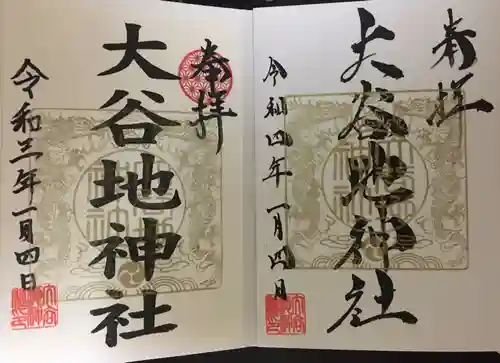 奉拝
大谷地神社
令和四年一月四日
奉拝
大谷地神社
令和三年一月四日